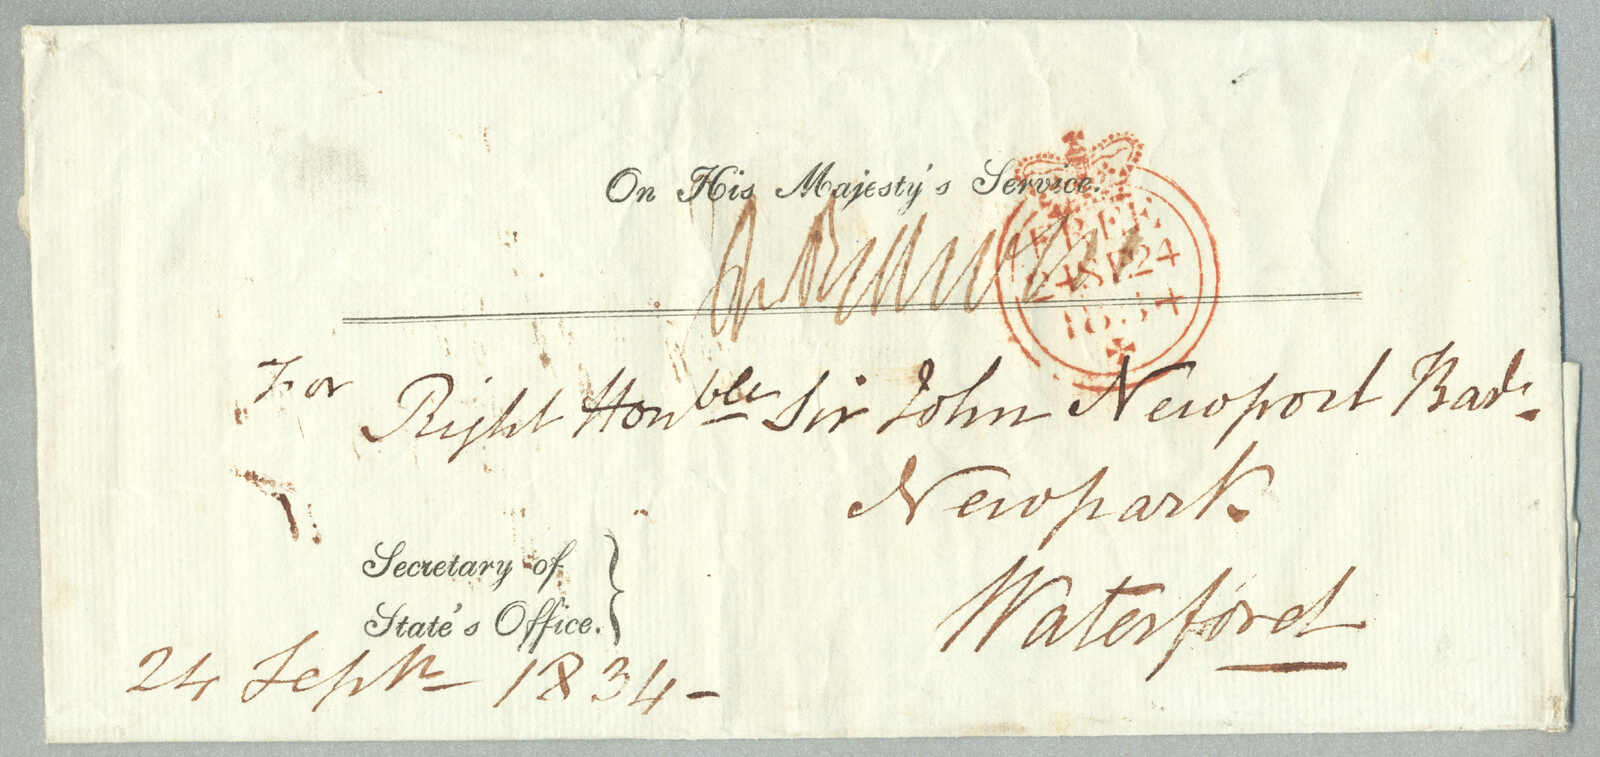 On His Majesty's Service.
FREE
24 SE 24
1834
For Right Honble Sir John Newport Bart.
Newpark
Waterford
Secretary of
State's Office.
24 Septr 1834